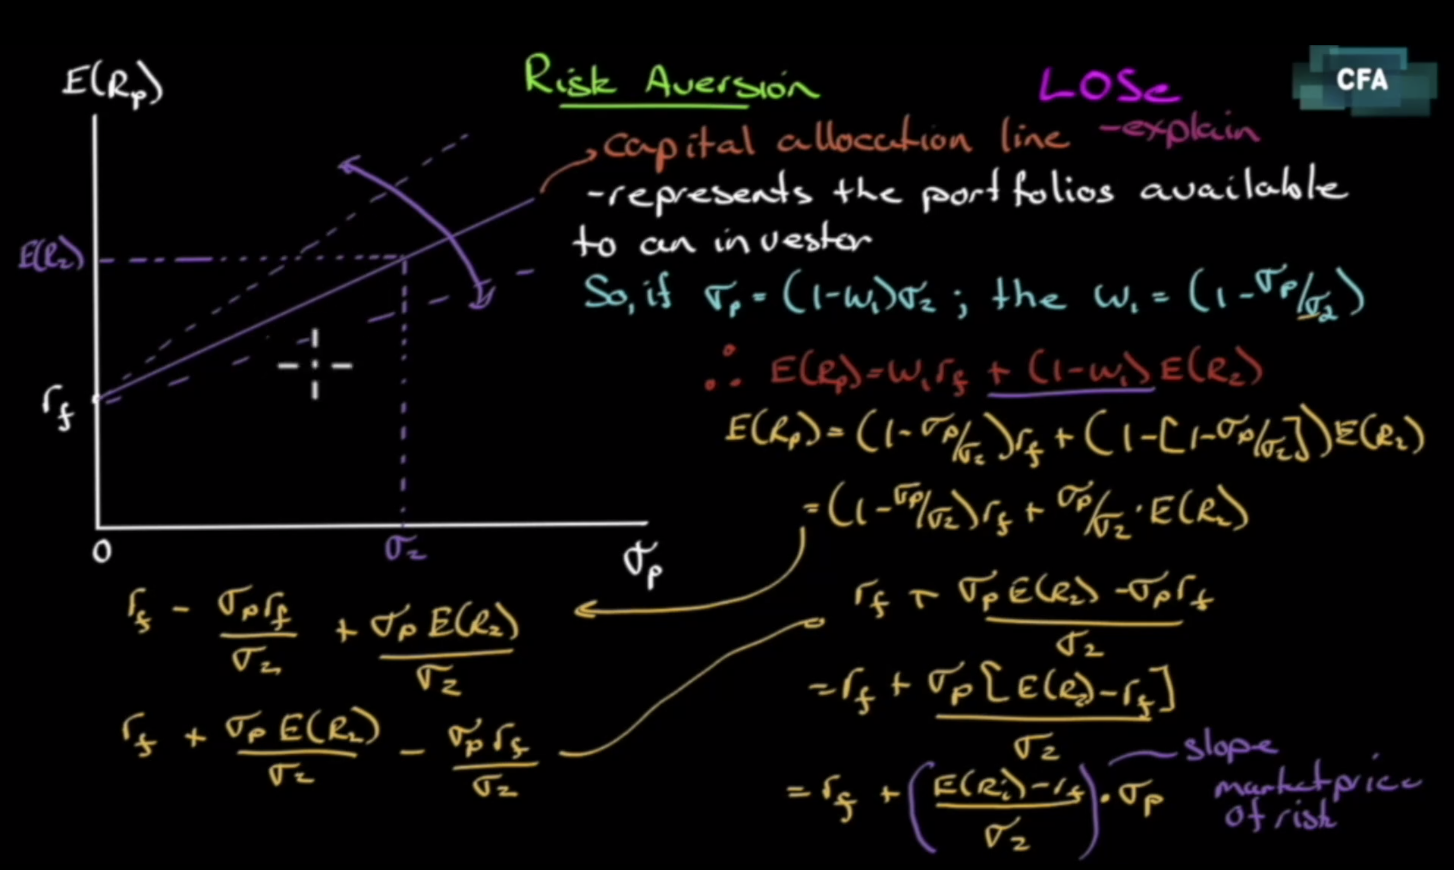 E(Rp)
Risk Aversion
LOSe
CFA
capital allocation line -explain
-represents the portfolios available
to an investor
E(R2)
So, if σp = (1-w1)σ2 ; the w1 = (1-σp/σ2)
∴ E(Rp)=w1rf + (1-w1) E(R2)
rf
E(Rp) = (1-σp/σ2)rf + (1-[1-σp/σ2])E(R2)
= (1-σp/σ2)rf + σp/σ2 · E(R2)
0
σ2
σp
rf - σprf/σ2 + σp E(R2)/σ2
rf + σp E(R2) - σprf/σ2
= rf + σp [E(R2) - rf]/σ2
rf + σp E(R2)/σ2 - σp rf/σ2
slope
market price
of risk
= rf + (E(Ri) - rf/σ2) · σp